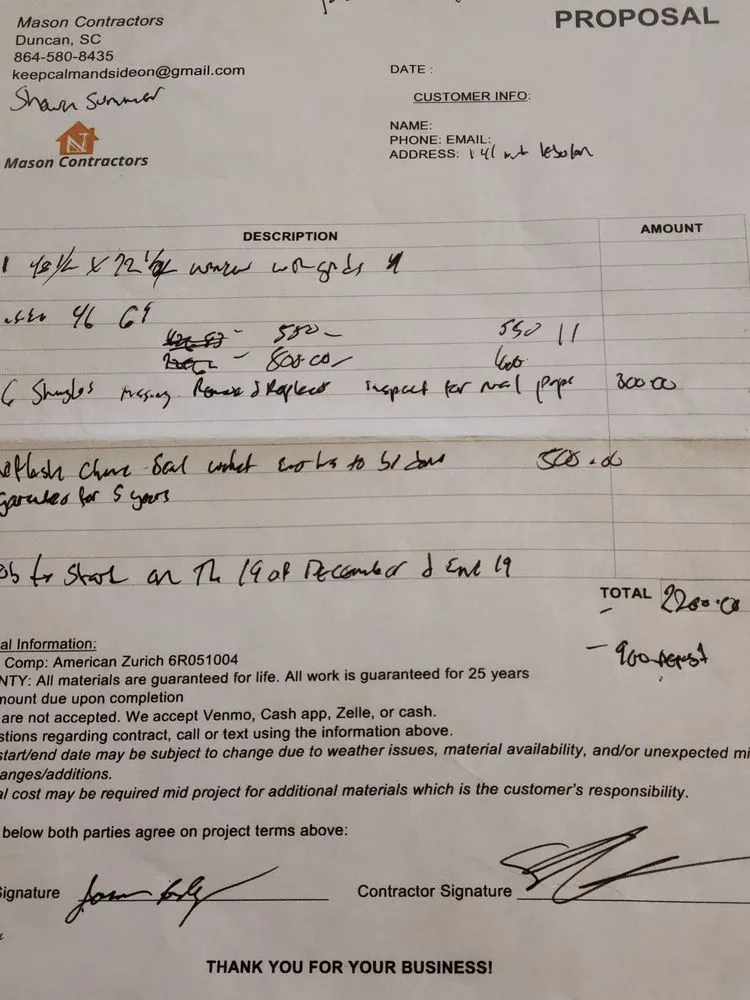 Mason Contractors
Duncan, SC
864-580-8435
keepcalmandsideon@gmail.com
Shawn Summer
N
Mason Contractors
PROPOSAL
DATE :
CUSTOMER INFO:
NAME:
PHONE: EMAIL:
ADDRESS: 141 mt
DESCRIPTION
AMOUNT
1 48 1/2 X 72 1/2
46 69
550 -
550 11
- 800.00
600
6 Shingles missing Remove & Replace inspect for 300.00
500.00
for 5 years
to Start on The 19 of December & End 19
TOTAL 2200.00
- 900 deposit
al Information:
Comp: American Zurich 6R051004
NTY: All materials are guaranteed for life. All work is guaranteed for 25 years
mount due upon completion
are not accepted. We accept Venmo, Cash app, Zelle, or cash.
stions regarding contract, call or text using the information above.
start/end date may be subject to change due to weather issues, material availability, and/or unexpected mi
anges/additions.
al cost may be required mid project for additional materials which is the customer's responsibility.
below both parties agree on project terms above:
ignature
Contractor Signature
THANK YOU FOR YOUR BUSINESS!